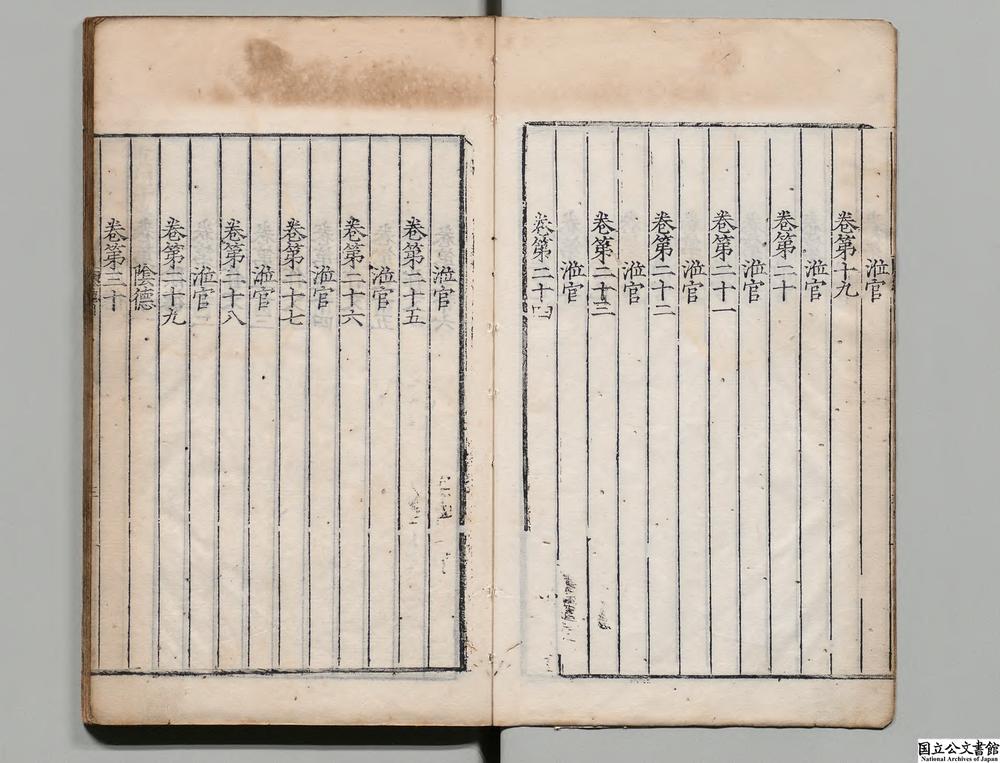 涖官
卷第十九
涖官
卷第二十
涖官
卷第二十一
涖官
卷第二十二
涖官
卷第二十三
涖官
卷第二十四
涖官
卷第二十五
涖官
卷第二十六
涖官
卷第二十七
涖官
卷第二十八
涖官
卷第二十九
陰德
卷第三十
国立公文書館
National Archives of Japan